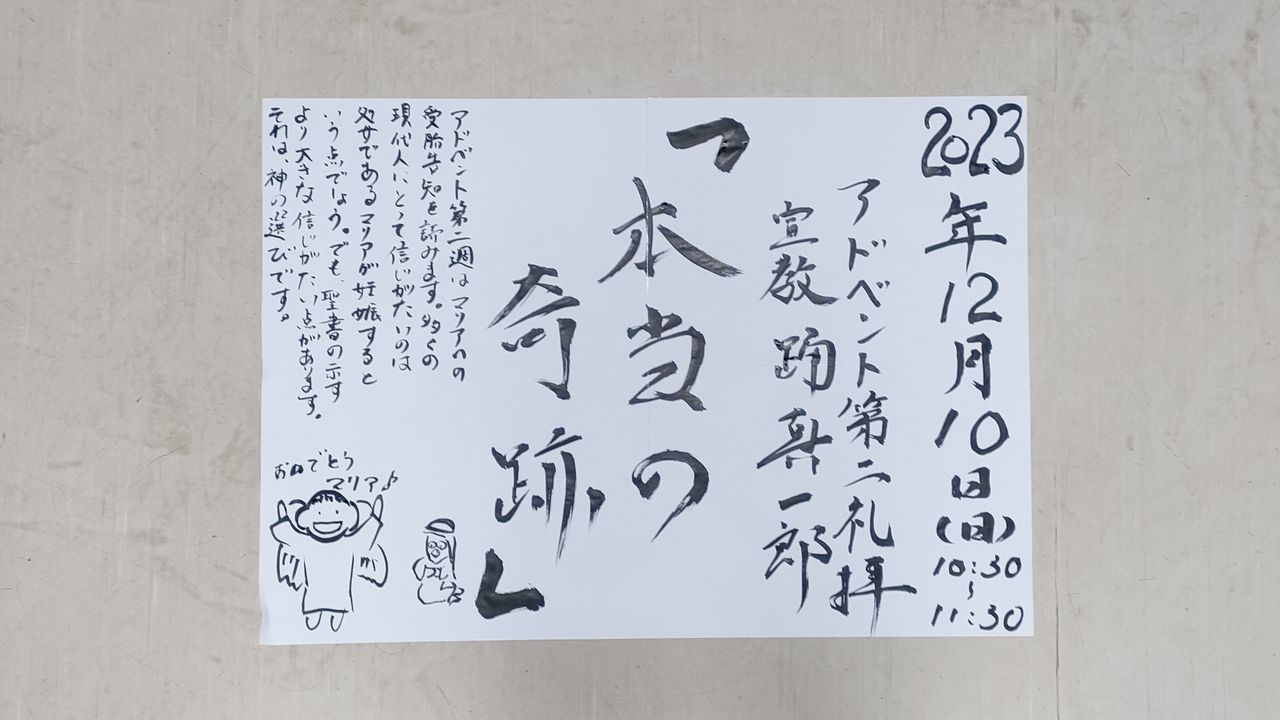 2023年12月10日(日)10:30～11:30
アドベント第二礼拝
宣教 踊真一郎
「本当の
奇跡」
アドベント第二週はマリアへの
受胎告知を読みます。多くの
現代人にとって信じがたいのは
処女であるマリアが妊娠すると
いう点でしょう。でも、聖書の示す
より大きな信じがたい点があります。
それは、神の選びです。
おめでとう
マリア♪